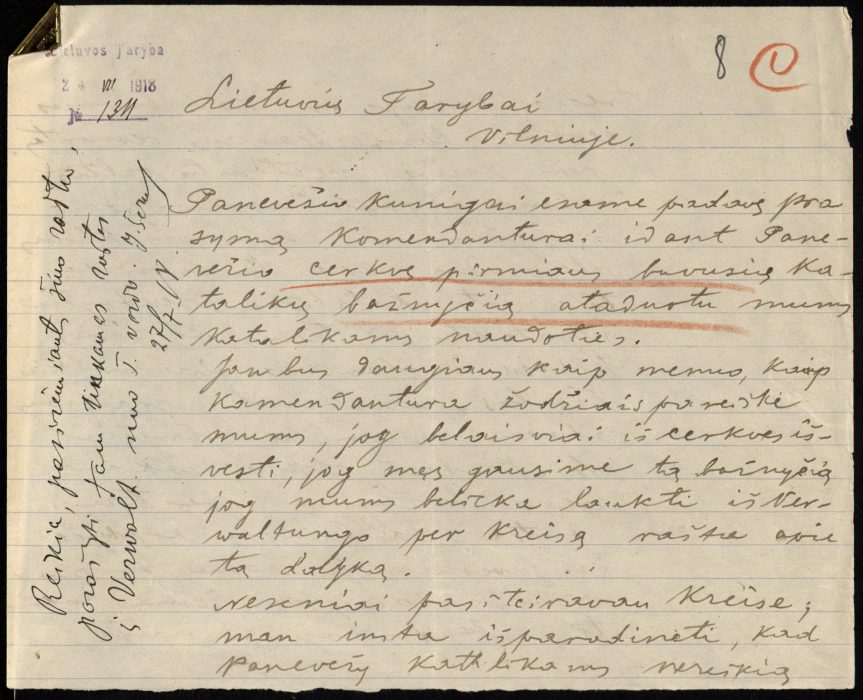 Lietuvos Taryba
24 VII 1918
№ 1311
8 C
Lietuvių Tarybai
Vilniuje.
Panevežio kunigai esame padavę pra
symą Komendanturai idant Pane-
vežio cerkvę pirmiaus buvusią ka-
talikų bažnyčią ataduotu mums
katalikams naudoties.
Jau bus daugiaus kaip menuo, kaip
Kamendantura žodžiais pareiškė
mums, jog belaisviai iš cerkves iš-
vesti, jog męs gausime tą bažnyčią
jog mums belieka laukti iš Ver-
waltungo per Kreisą rašta apie
tą dalyką.
Neseniai pasiteiravau Kreise;
man imta išparodineti, kad
Panevežy Katalikams nereikią
Reikia, pasiremiant šiuo raštu,
parašyti tam tinkamas raštas
į Verwalt. nuo T. vardo. J. Šern
27/7-18